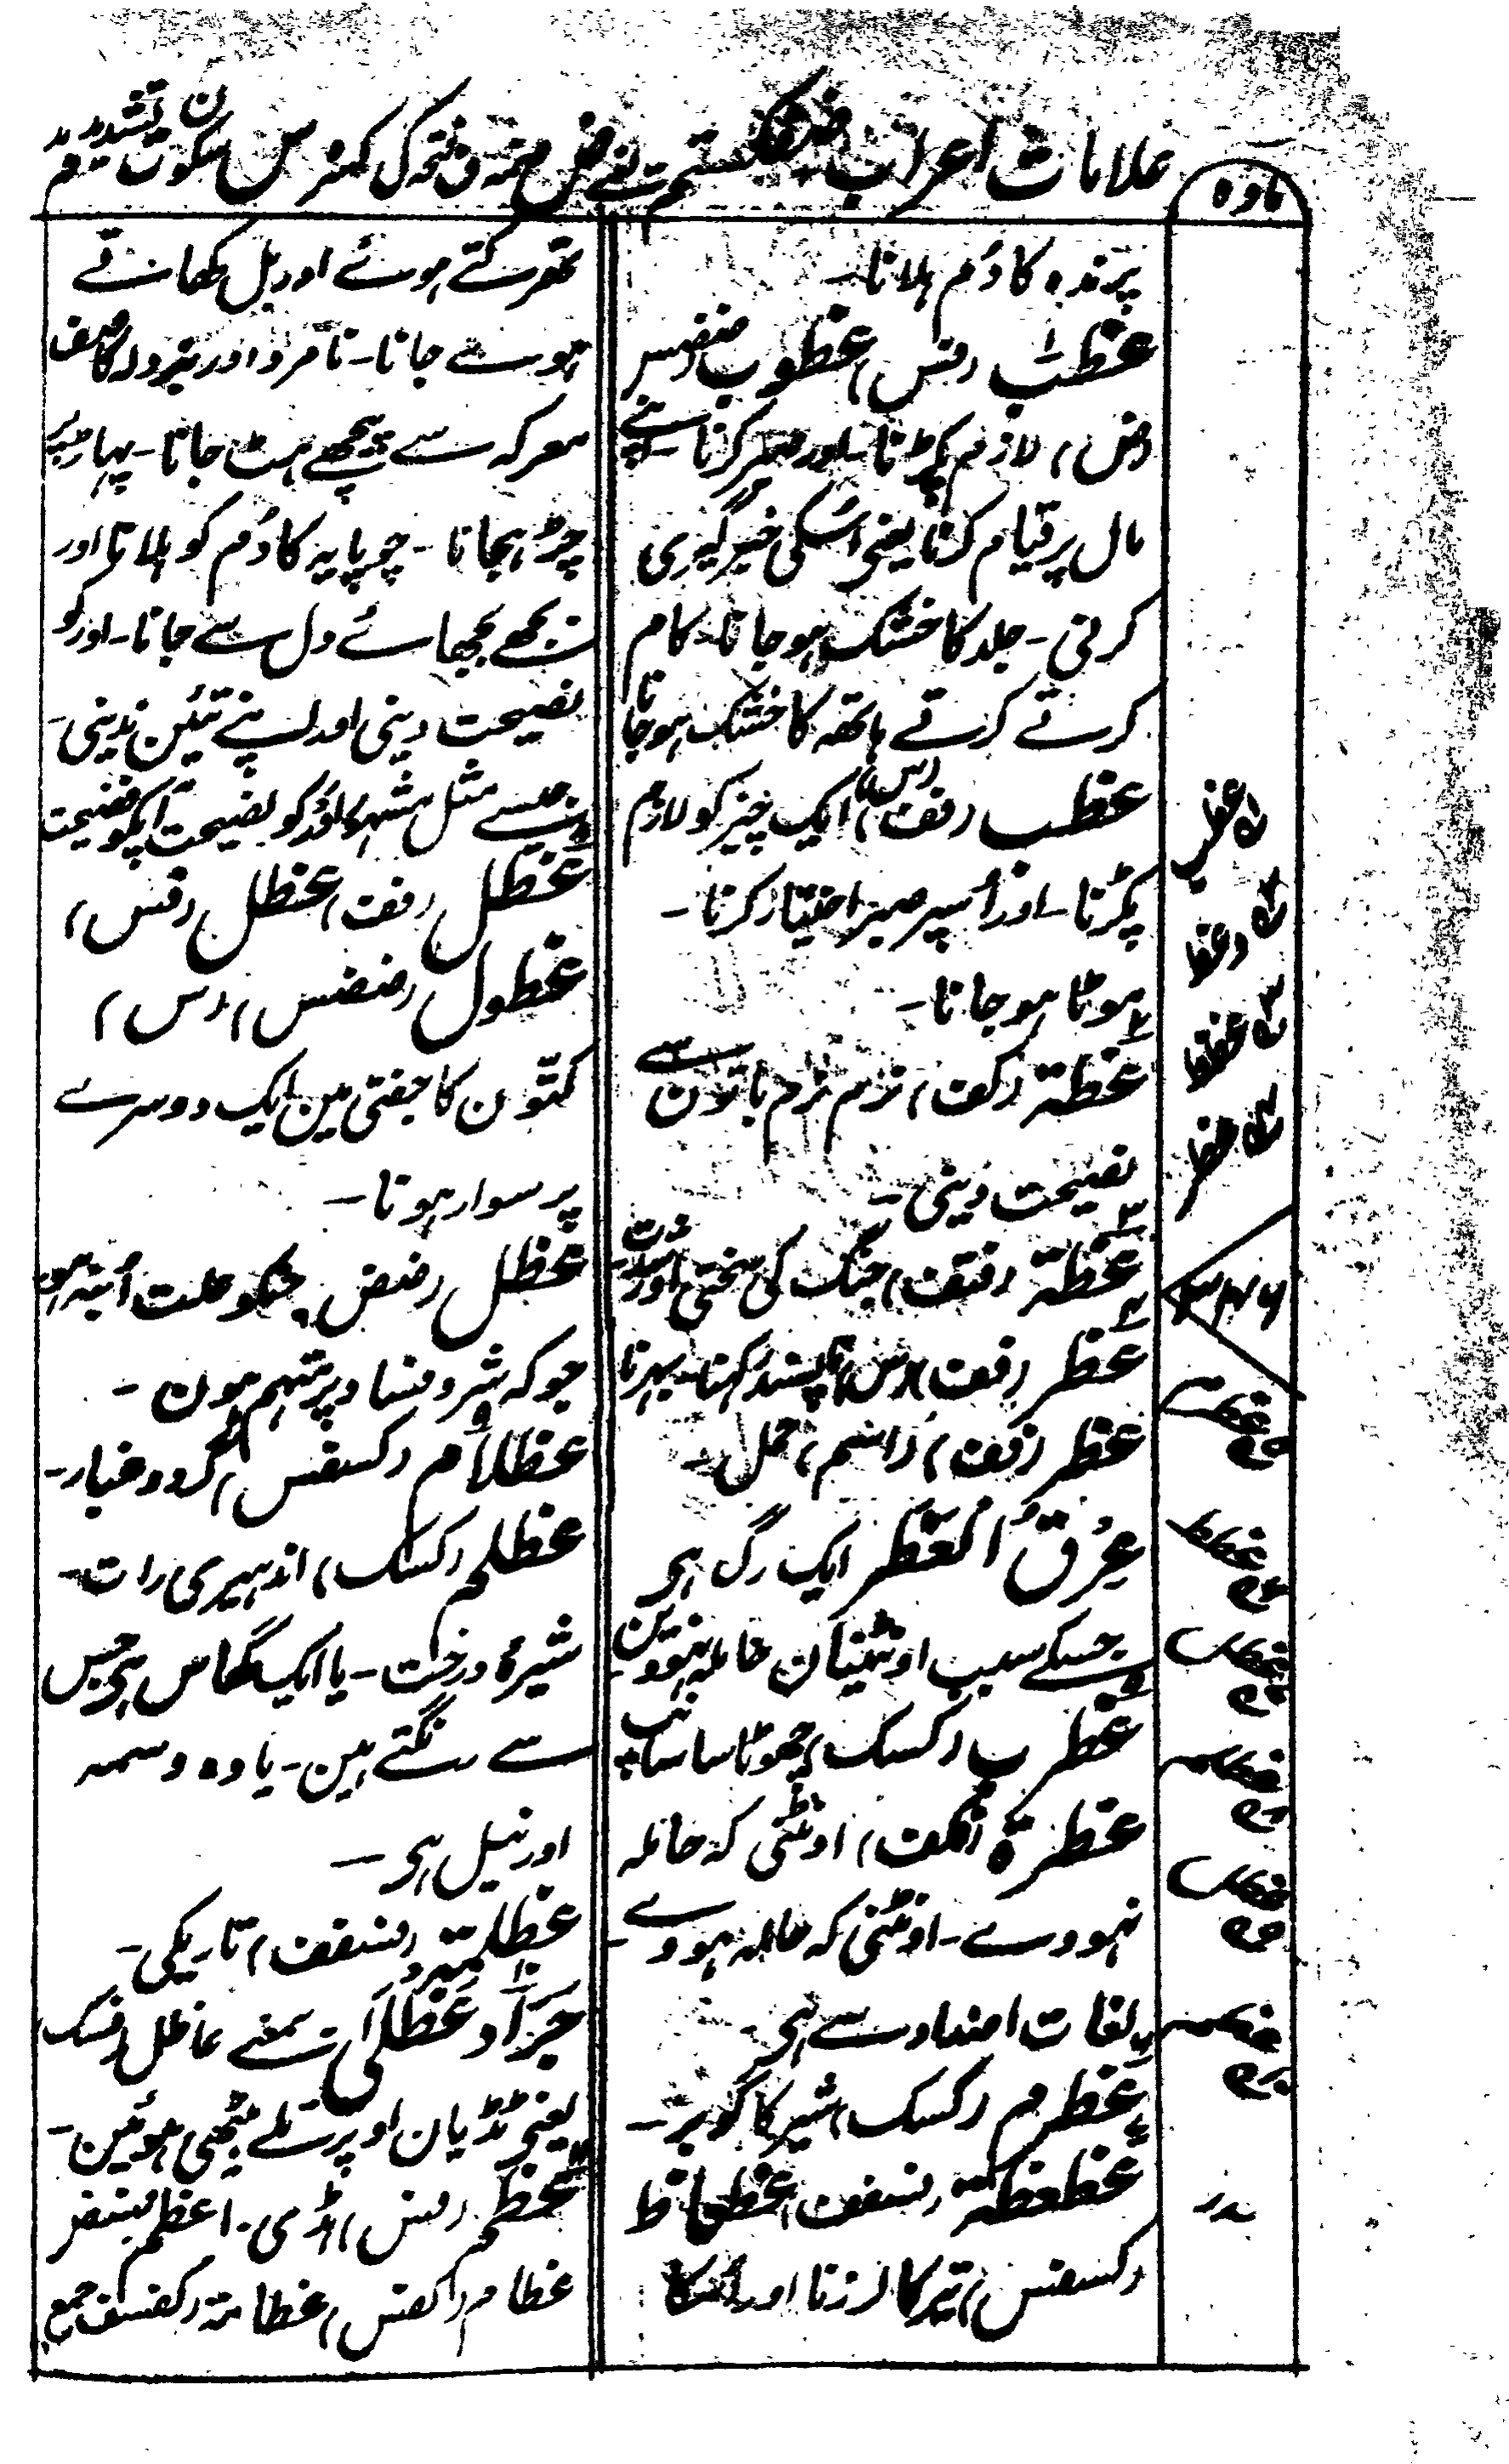 مادہ
علامات اعراب ضفکستم ت نے ض ضمہ ف فتحہ ک کسرہ س سکون ت تشدید م
پرندہ کا دُم ہلانا۔
عظب (فس) عظوب (ضضس)
(ض) لازم پکڑنا۔ اور صبر کرنا۔ اپنے
مال پر قیام کرنا یعنی اُسکی خبرگیری
کرنی۔ جلد کا خشک ہو جانا۔ کام
کرتے کرتے ہاتھ کا خشک ہو جانا
عظب (فف) (س) ایک چیز کو لازم
پکڑنا۔ اور اُسپر صبر اختیار کرنا۔
موٹا ہو جانا۔
عظة (کف) نرم نرم باتون سے
نصیحت دینی۔
عظة (فتف) جنگ کی سختی اور شدت
عظر (فف) (س) ناپسند رکھنا۔ بھرنا
عظر (فف) (اسم) حمل۔
عِرقُ العَظَر ایک رگ ہی
جسکے سبب اونٹنیان حاملہ نہووین
عظرب (کسک) چھوٹا سا سانپ
عظرة (فکف) اونٹنی کہ حاملہ
نہووے۔ اونٹنی کہ حاملہ ہووے۔
لغات اضداد سے ہی۔
عظرم (کسک) شیر کا گوبر۔
عظعظة (فسفف) عظعاظ
(کسفس) تیر کا لرزنا اور اُسکا
تھرکتے ہوئے اور بل کھاتے
ہوے جانا۔ نامرد اور بزدل کا صف
معرکہ سے پیچھے ہٹ جانا۔ پہاڑ پر
چڑہجانا۔ چوپایہ کا دُم کو ہلانا اور
بجھے بجھائے دل سے جانا۔ اور کو
نصیحت دینی اور اپنے تئین ندینی۔
جیسے مثل مشہور اوَرکو نصیحت آپکو فضیحت
عظل (فف) عظل (فس)
عظول (ضضس) (س)
کتّون کا جفتی مین ایک دوسرے
پر سوار ہونا۔
عظل (ضض) جنکو علت اُبنہ ہو
جو کہ شر و فساد پر متہم ہون۔
عظلام (کسفس) گرد و غبار۔
عظلم (کسک) اندہیری رات۔
شیرۂ درخت۔ یا ایک گھاس ہی جس
سے رنگتے ہین۔ یا وہ وسمہ
اور نیل ہی۔
عظلمة (فسفف) تاریکی۔
جَرَاد عَظلَی بمعنے عاظل (فسک)
یعنی ٹڈیان اوپر تلے بیٹھی ہوئین۔
عظم (فس) ہڈی۔ اعظم (فسض)
عظام (کفس) عظامة (کفسف) جمع